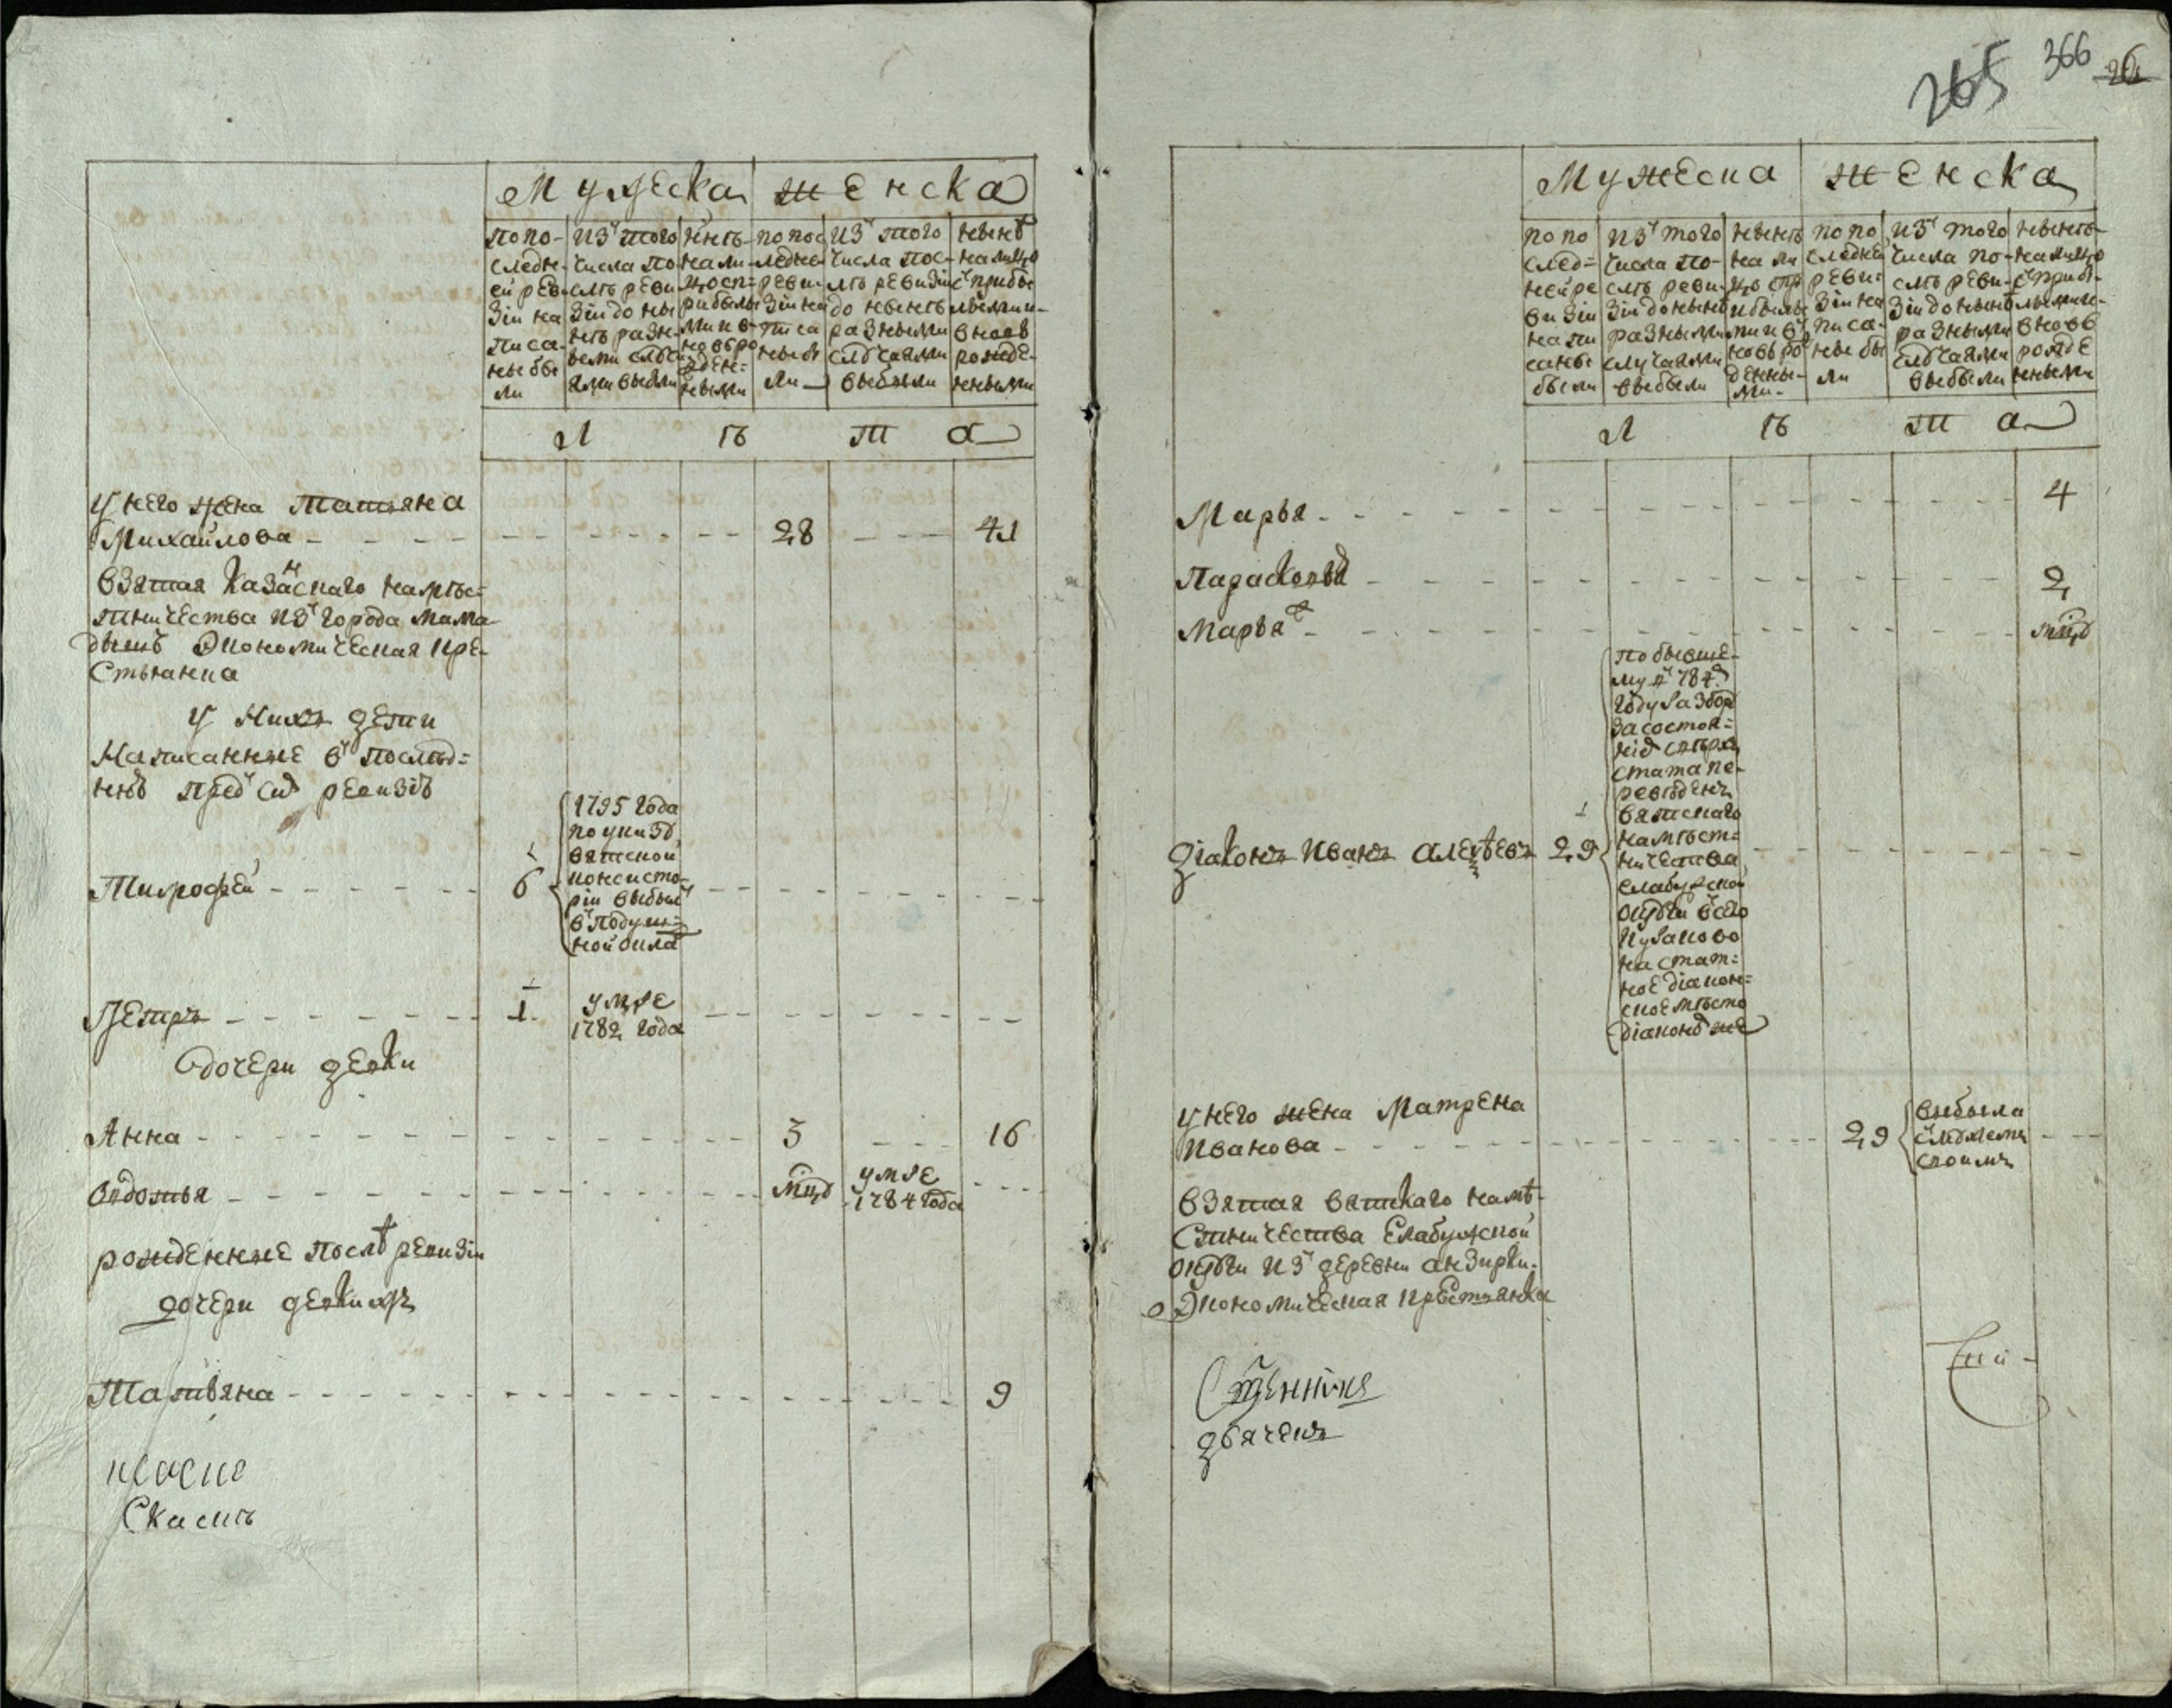 Мужеска женска
по по-
следн-
ей реви
зіи на
писа-
ные бы
ли
изъ того
числа по
слѣ реви
зіи до ны
нѣ разн-
ыми слуа
ями выбыли
нынѣ
на ли-
цо съ п-
рибылы
ми и в-
новьро
жден-
ными
по пос
ледней
реви
зіи на
писа
ные бы
ли
изъ того
числа пос-
лѣ ревизіи
до нынѣ
разными
случаями
выбыли
нынѣ
на лицо
съ прибы
лыми и
вновь
рожде-
нными
Л ѣ т а
у него жена Татьяна
Михайлова 28 41
взятая Казанскаго намѣс=
тничества изъ города Мама
дышъ Экономическая кре-
стьянка
у нихъ дети
Написанные въ послѣд=
ней предъ сей ревизіи
Тимофей 6
1795 года
по указу
вятской
консисто-
ріи выбылъ
въ подуш=
ной окла
Петръ 1 умре
1782 года
дочери девки
Анна 3 16
Овдотья мцъ умре
1784 года
рожденные послѣ ревизіи
дочери девки ихъ
Татьяна 9
Скаскѣ
265 366 26
Мужеска женска
по по
след=
ней ре
визіи
напи
саные
были
изъ того
числа по-
слѣ реви
зіи до нынѣ
разными
случаями
выбыли
нынѣ
на ли
цо съ пр
ибылы
ми и въ
новь ро
жденны-
ми
по по
следней
реви
зіи на
писа-
ные бы
ли
изъ того
числа по-
слѣ реви-
зіи до нынѣ
разными
случаями
выбыли
нынѣ
на лицо
съ прибы-
лыми и
вновь
рожде
нными
Л ѣ т а
Марья 4
Парасковья 2
Марья мцъ
по бывше-
му въ 784
году разбору
за состоя=
ніе сверхъ
стата пе-
реведенъ
вятскаго
намѣст=
ничества
елабужской
округи въ село
на стат=
ное діакон=
ское мѣсто
діакономъ же
діаконъ Иванъ Алеѯѣевъ 29
у него жена Матрена
Иванова 29
выбыла
съ мужемъ
своимъ
взятая вятскаго намѣ-
стничества Елабужской
округи изъ деревни Анзирки
Экономическая крестьянка